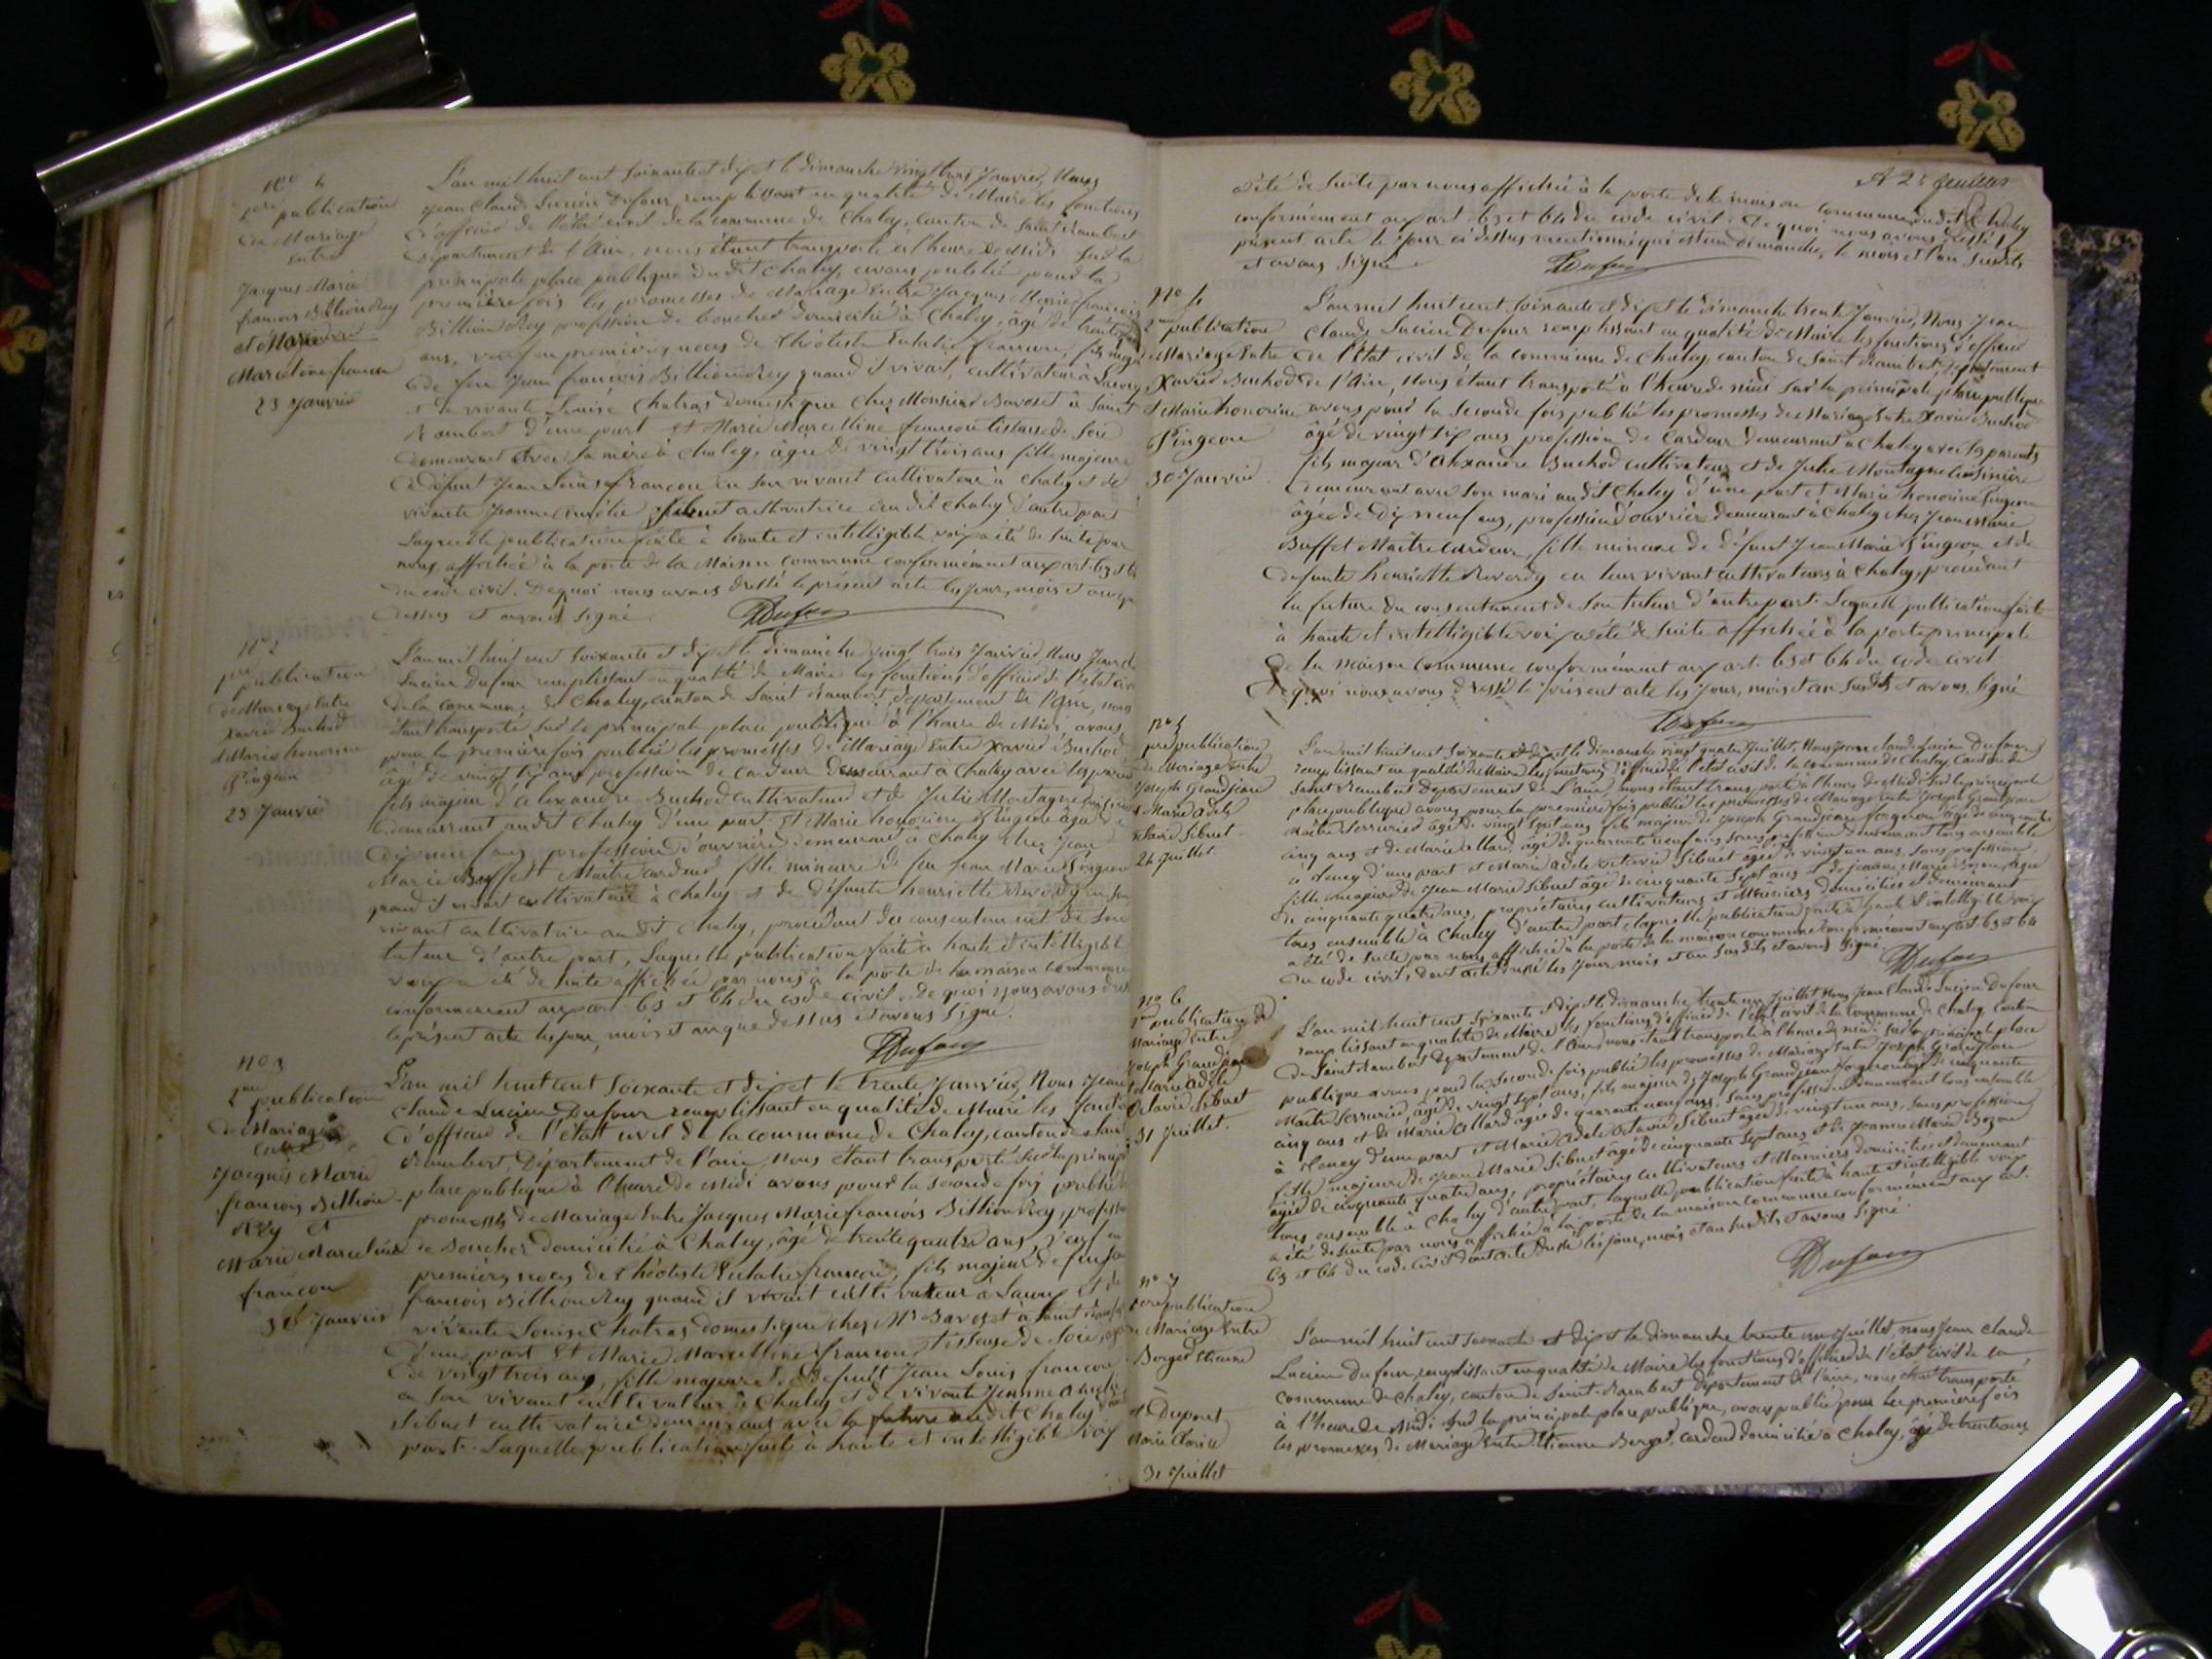 No 1
1ere publication
de Mariage
Entre
Jacques Marie
francois Billion Rey
et Marie
Marceline francon
23 Janvier
L'an mil huit cent soixante et dix et le dimanche vingt trois Janvier, Nous
Jean Claude Lucien Dufour, remplissant en qualité de Maire les fonctions
d'officier de l'état civil de la commune de Chaley, canton de Saint Rambert
département de l'Ain, nous étant transporté a l'heure de Midi sur la
principale place publique du dit Chaley, avons publié pour la
première fois les promesses de Mariage Entre Jacques Marie francois
Billion Rey profession de boucher domicilié à Chaley, âgé de trente
ans, veuf en premières noces de Théotiste Eulalie francon, fils majeur
de feu Jean francois Billion Rey quand il vivait, cultivateur à
et de vivante Louise Chatras domestique chez Monsieur Bavoset à Saint
Rambert d'une part Et Marie Marcelline francon tisseuse de soie
demeurant avec sa mère à Chaley, âgée de vingt trois ans fille majeure
de défunt Jean Louis francon en son vivant cultivateur à Chaley et de
vivante Jeanne Amélie Sibuet cultivatrice au dit Chaley d'autre part
Laquelle publication faite à haute et intelligible voix a été de suite par
nous affichée à la porte de la Maison commune conformément aux art. 63 et 64
du code civil. De quoi nous avons dressé le présent acte les jour, mois et an que
dessus et avons signé.
Dufour
No 2
1ere publication
de Mariage Entre
Xavier Buchod
et Marie honorine
Pingeon
23 Janvier
L'an mil huit cent soixante et dix et le dimanche vingt trois Janvier Nous Jean
Lucien Dufour remplissant en qualité de Maire les fonctions d'officier de l'état
de la commune de Chaley, canton de Saint Rambert, département de l'Ain, nous
étant transporté sur la principale place publique à l'heure de Midi, avons
pour la première fois publié les promesses de Mariage Entre Xavier Buchod
âgé de vingt six ans profession de cardeur demeurant à Chaley avec ses parents
fils majeur d'Alexandre Buchod cultivateur et de Julie Montagne
demeurant audit Chaley d'une part. Et Marie honorine Pingeon âgée de
dix neuf ans, profession d'ouvrière demeurant à Chaley chez Jean
Marie Buffet Maître cardeur fille mineure de feu Jean Marie Pingeon
quand il vivait cultivateur à Chaley et de défunte henriette Reverdy en son
vivant cultivatrice audit Chaley, procédant du consentement de son
tuteur d'autre part, Laquelle publication faite à haute et intelligible
voix a été de suite affichée par nous à la porte de la maison commune
conformément aux art. 63 et 64 du code civil. De quoi nous avons
le présent acte les jour, mois et an que dessus et avons signé.
Dufour
No 3
2me publication
de Mariage
Entre
Jacques Marie
francois Billion
Rey et
Marie Marceline
francon
30 Janvier
L'an mil huit cent soixante et dix et le trente Janvier, Nous Jean
Claude Lucien Dufour remplissant en qualité de Maire les
d'officier de l'état civil de la commune de Chaley, canton de Saint
Rambert, Département de l'ain, Nous étant transporté sur la
place publique à l'heure de Midi avons pour la seconde fois publié
promesses de Mariage Entre Jacques Marie francois Billion Rey,
de Boucher domicilié à Chaley, âgé de trente quatre ans, veuf en
premières noces de Théotiste Eulalie francon, fils majeur de
francois Billion Rey quand il vivait cultivateur à et de
vivante Louise Chatras domestique chez Mr Bavoset à Saint
d'une part Et Marie Marcelline francon, tisseuse de Soie,
de vingt trois ans, fille majeure de défunt Jean Louis francon
en son vivant cultivateur à Chaley et de vivante Jeanne Amélie
Sibuet cultivatrice demeurant avec la future audit Chaley
part. Laquelle publication faite à haute et intelligible voix
A 2e feuillet
a été de suite par nous affichée à la porte de la maison commune du dit Chaley
conformément aux art. 63 et 64 du code civil. De quoi nous avons dressé le
présent acte le jour ci dessus mentionné qui est un dimanche, le mois et l'an susdits
et avons signé
Dufour
No 4
2me publication
Mariage Entre
Xavier Buchod
et Marie honorine
Pingeon
30 Janvier
L'an mil huit cent soixante et dix et le dimanche trente Janvier, Nous Jean
Claude Lucien Dufour remplissant en qualité de Maire les fonctions d'officier
de l'État civil de la commune de Chaley canton de Saint Rambert, département
de l'Ain, Nous étant transporté à l'heure de midi sur la principale place publique
avons pour la seconde fois publié les promesses de Mariage Entre Xavier Buchod
âgé de vingt six ans profession de Cardeur demeurant à Chaley avec ses parents
fils majeur d'Alexandre Buchod cultivateur et de Julie Montagne Cuisinière
demeurant avec son mari au dit Chaley d'une part et Marie honorine Pingeon
âgée de Dix neuf ans, profession d'ouvrière demeurant à Chaley chez Jean Marie
Buffet Maître Cardeur, fille mineure de défunt Jean Marie Pingeon et de
defunte henriette Reverdy en leur vivant cultivateurs à Chaley, procédant
la future du consentement de son tuteur d'autre part. Laquelle publication faite
à haute et intelligible voix a été de suite affichée à la porte principale
De la maison commune conformément aux art. 63 et 64 du code civil
De quoi nous avons dressé le présent acte les jour, mois et an susdits et avons signé
Dufour
No 5
1ere publication
de Mariage Entre
Joseph Grandjean
et Marie Adele
Octavie Sibuet.
24 Juillet.
L'an mil huit cent soixante et dix et le dimanche vingt quatre Juillet, Nous Jean Claude Lucien Dufour
remplissant en qualité de Maire les fonctions d'officier de l'état civil de la commune de Chaley, Canton de
Saint Rambert Département de L'ain, nous étant transporté à l'heure de Midi sur la principale
place publique avons pour la première fois publié les promesses de Mariage Entre Joseph Grandjean
Maître Serrurier âgé de vingt sept ans fils majeur de Joseph Grandjean forgeron âgé de cinquante
cinq ans et de Marie Allard âgée de quarante neuf ans sans profession demeurant tous ensemble
à Tenay d'une part et Marie adele octavie Sibuet âgée de vingt un ans, sans profession
fille majeure de Jean Marie Sibuet âgé de cinquante sept ans et de Jeanne Marie Bozon âgée
de cinquante quatre ans, propriétaires cultivateurs et Meuniers domiciliés et demeurant
tous ensemble à Chaley d'autre part, laquelle publication faite à haute et intelligible voix
a été de suite par nous affichée à la porte de la maison commune conformément aux art. 63 et 64
du code civil, dont acte dressé les jour, mois et an susdits et avons signé.
Dufour
No 6
2me publication de
Mariage Entre
Joseph Grandjean
et Marie Adèle
Octavie Sibuet
31 Juillet.
L'an mil huit cent soixante et dix et le dimanche trente un Juillet Nous Jean Claude Lucien Dufour
remplissant en qualité de Maire les fonctions d'officier de l'état civil de la Commune de Chaley canton
de Saint Rambert Département de l'Ain, nous étant transporté à l'heure de midi sur la principale place
publique avons pour la seconde fois publié les promesses de Mariage Entre Joseph Grandjean
Maître Serrurier, âgé de vingt sept ans, fils majeur de Joseph Grandjean forgeron âgé de cinquante
cinq ans et de Marie Allard âgée de quarante neuf ans, sans profession demeurant tous ensemble
à Tenay d'une part et Marie Adele Octavie Sibuet âgée de vingt un ans, sans profession
fille majeure de Jean Marie Sibuet âgé de cinquante sept ans et de Jeanne Marie Bozon
âgée de cinquante quatre ans, propriétaires cultivateurs et Meuniers domiciliés et demeurant
tous ensemble à Chaley d'autre part, laquelle publication faite à haute et intelligible voix
a été de suite par nous affichée à la porte de la maison commune conformément aux art.
63 et 64 du code civil dont acte dressé les jour, mois et an susdits et avons signé.
Dufour
No 7
1ere publication
de Mariage Entre
Borget Etienne
et Dupont
Marie Clarice
31 Juillet
L'an mil huit cent soixante et dix et le dimanche trente un Juillet, nous Jean Claude
Lucien Dufour, remplissant en qualité de Maire les fonctions d'officier de l'état civil de la
commune de Chaley, canton de Saint-Rambert département de l'ain, nous étant transporté
à l'heure de Midi sur la principale place publique, avons publié pour la première fois
les promesses de Mariage Entre Etienne Borget, cardeur domicilié à Chaley, âgé de trente ans